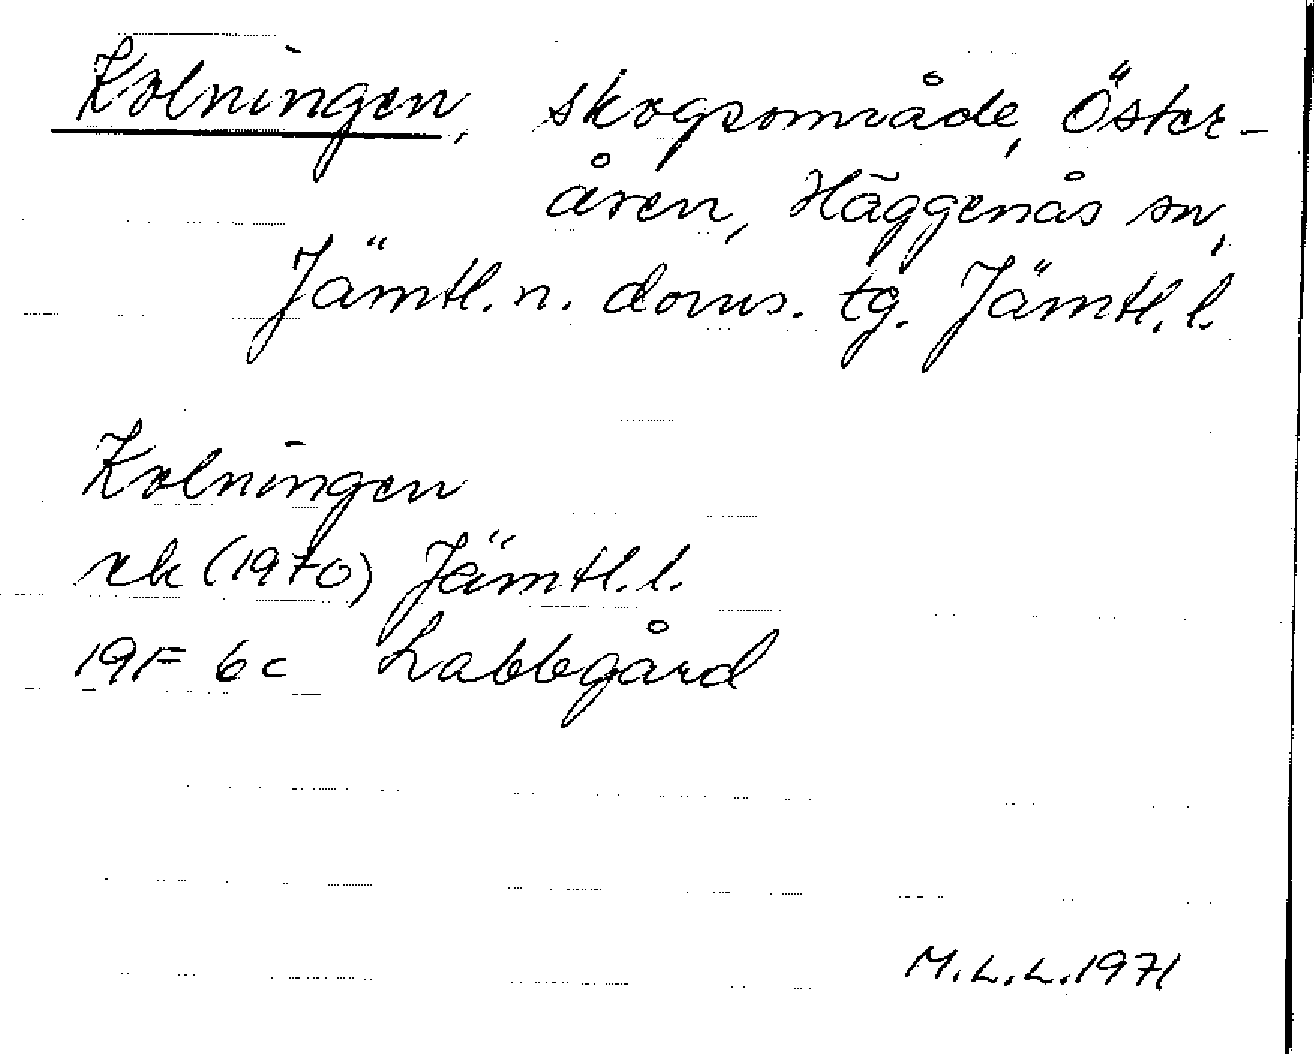 Kolningen, skogsområde, Öster-
åsen, Häggenås sn,
Jämtl. n. doms. tg. Jämtl. l.
Kolningen
rek (1970) Jämtl. l.
19F 6c Labbgård
M.L.L. 1971